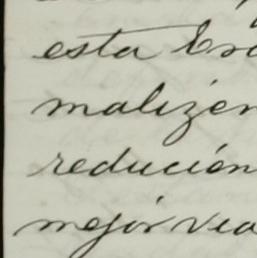 esta
malizen
redución
mejór